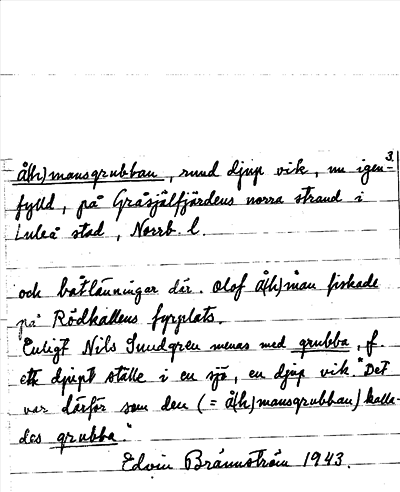 3.
Å(h)mansgrubban, rund djup vik, nu igen-
fylld, på Gråsjälfjärdens norra strand i
Luleå stad, Norrb. l.
och båtlänningar där. Olof Å(h)man fiskade
på Rödkallens fyrplats.
Enligt Nils Sundgren menas med grubba, f.
ett djupt ställe i en sjö, en djup vik. "Det
var därför som den (= Å(h)mansgrubban) kalla-
des grubba".
Edvin Brännström 1943.